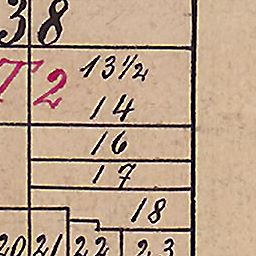 38
T2 13½
14
16
17
18
20 21 22 23